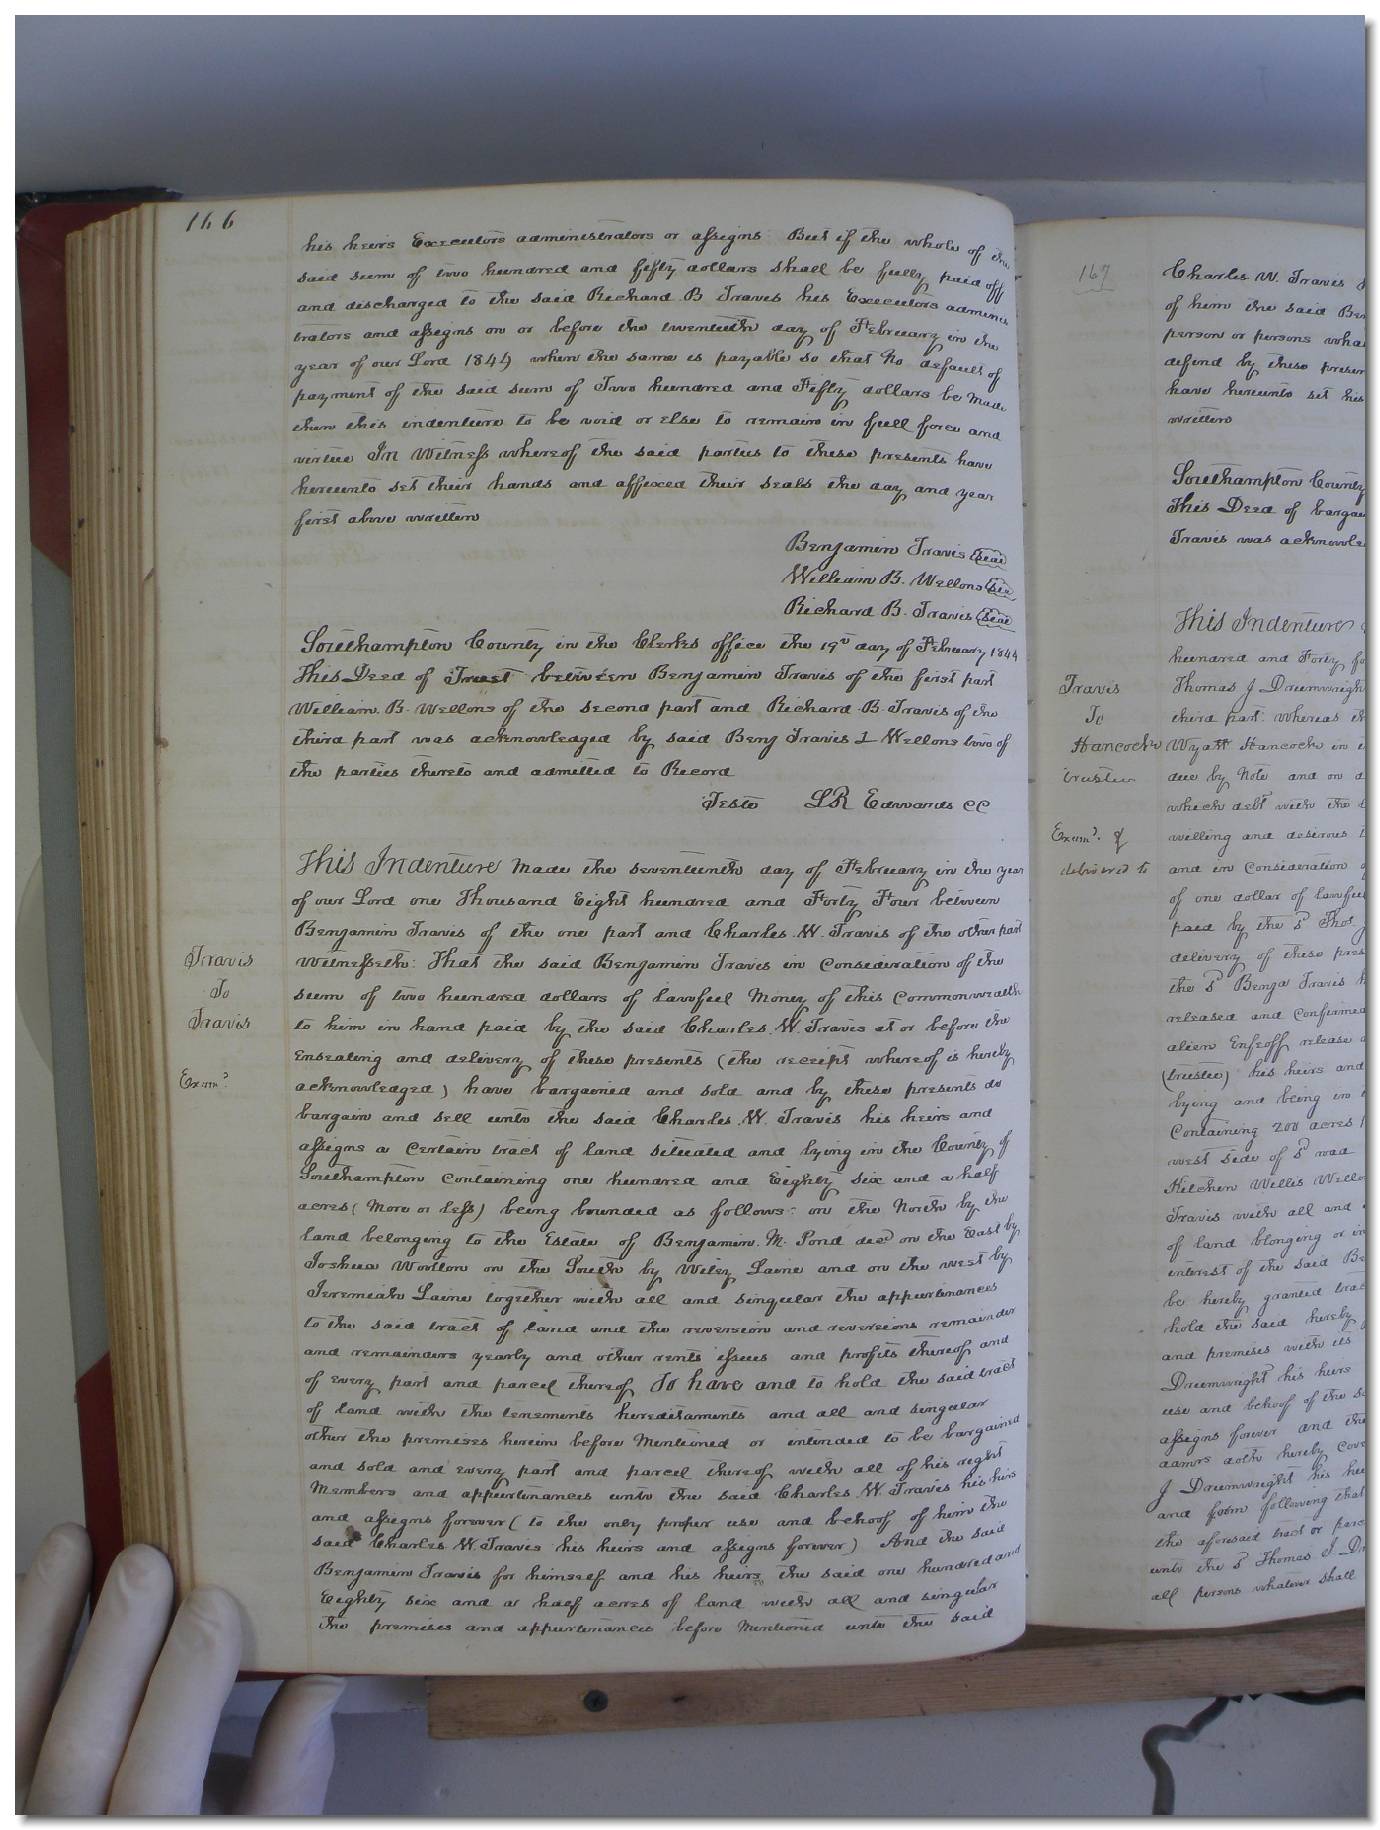 166
his heirs Executors administrators or assigns But if the whole of the
said sum of two hundred and fifty dollars shall be fully paid off
and discharged to the said Richard B Travis his Executors adminis
trators and assigns on or before the twentieth day of February in the
year of our Lord 1849 when the same is payable so that No default of
payment of the said sum of Two hundred and Fifty dollars be Made
then this indenture to be void or Else to remain in full force and
virtue In Witness whereof the said parties to these presents have
hereunto set their hands and affixed their seals the day and year
first above written
Benjamin Travis Seal
William B. Wellons Seal
Richard B. Travis Seal
Southampton County in the Clerks office the 19th day of February 1844
This Deed of Trust between Benjamin Travis of the first part
William B. Wellons of the second part and Richard B. Travis of the
third part was acknowledged by said Benj Travis & Wellons two of
the parties thereto and admitted to Record
Teste LR Edwards CC
This Indenture Made the seventeenth day of February in the year
of our Lord one Thousand Eight hundred and Forty Four between
Benjamin Travis of the one part and Charles W. Travis of the other part
Travis
To
Travis
Exam.d
Witnesseth: That the said Benjamin Travis in Consideration of the
sum of two hundred dollars of lawfuel Money of this Commonwealth
to him in hand paid by the said Charles. W. Travis at or before the
Ensealing and delivery of these presents (the receipt whereof is hereby
acknowledged) have bargained and sold and by these presents do
bargain and sell unto the said Charles. W. Travis his heirs and
assigns a Certain tract of land situated and lying in the County of
Southampton Containing one hundred and Eighty six and a half
acres (More or less) being bounded as follows: on the North by the
land belonging to the Estate of Benjamin. M. Pond decd on the East by
Joshua Wootton on the South by Wiley Laine and on the west by
Jeremiah Laine together with all and singular the appurtinances
to the said tract of land and the reversion and reversions remainder
and remainders yearly and other rents issues and profits thereof and
of every part and parcel thereof To have and to hold the said tract
of land with the tenements hereditaments and all and singular
other the premises herein before Mentioned or intended to be bargained
and sold and every part and parcel thereof with all of his right
Members and appurtinances unto the said Charles W. Travis his hirs
and assigns forever (to the only proper use and behoof of him the
said Charles. W Travis his heirs and assigns forever) And the said
Benjamin Travis for himself and his heirs the said one hundred and
Eighty six and a half acres of land with all and singular
the premises and appurtinances before Mentioned unto the said
167
Charles W. Travis
of him the said Ben
person or persons wha
defend by these presen
have hereunto set his
written
Southampton County
This Deed of bargai
Travis was acknowle
This Indenture
hundred and Forty fo
Travis
To
Hancocks
trustee
Exam.d &
delivered to
Thomas J Drumwrigh
third part: whereas th
Wyatt Hancocke in
due by Note and on
which debt with the
willing and desirous
and in Consideration
of one dollar of lawfu
paid by the sd Thos J
delivery of these pres
the sd Benja Travis h
released and Confirmed
alien Enfeoff release
(trustee) his heirs and
lying and being in
Containing 200 acres
west side of sd road
Kitchen Willis Wello
Travis with all and
of land blonging or in
interest of the said Be
be hereby granted trac
hold the said hereby
and premises with its
Drumwright his heirs
use and behoof of the sa
assigns forever and the
admrs doth hereby cove
J Drumwright his hei
and form following that
the aforesaid tract or parc
unto the sd Thomas J Dr
all persons whatever shall